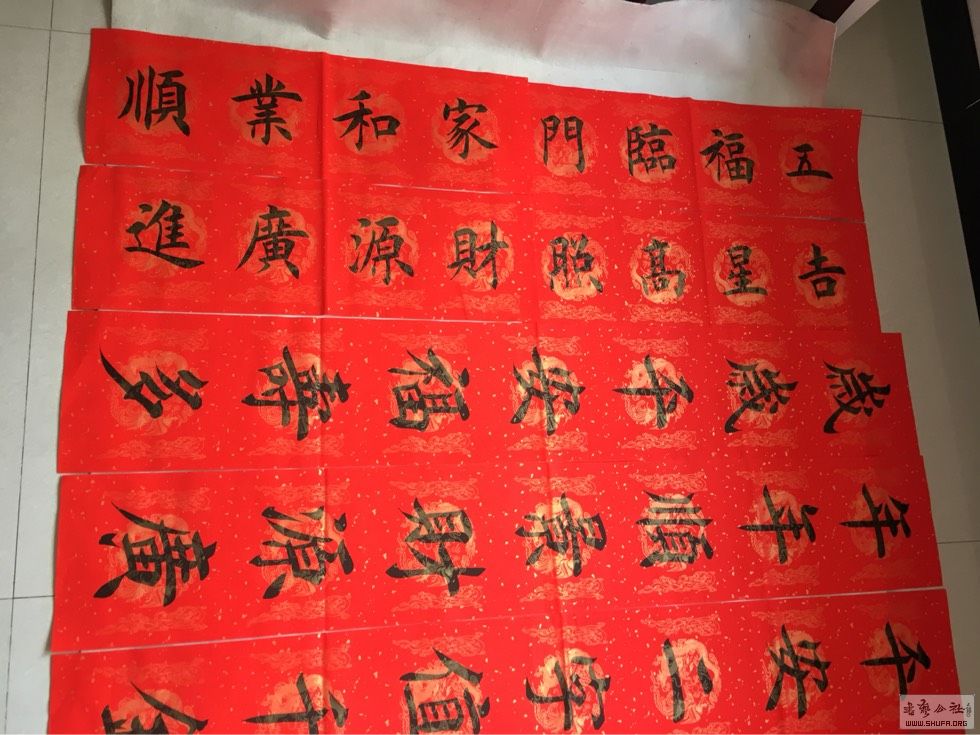 五福臨門
家和業順
吉星髙照
財源廣進
歲歲平安福壽多
年年順景財源廣
平安二字值千金
WWW.SHUFA.ORG